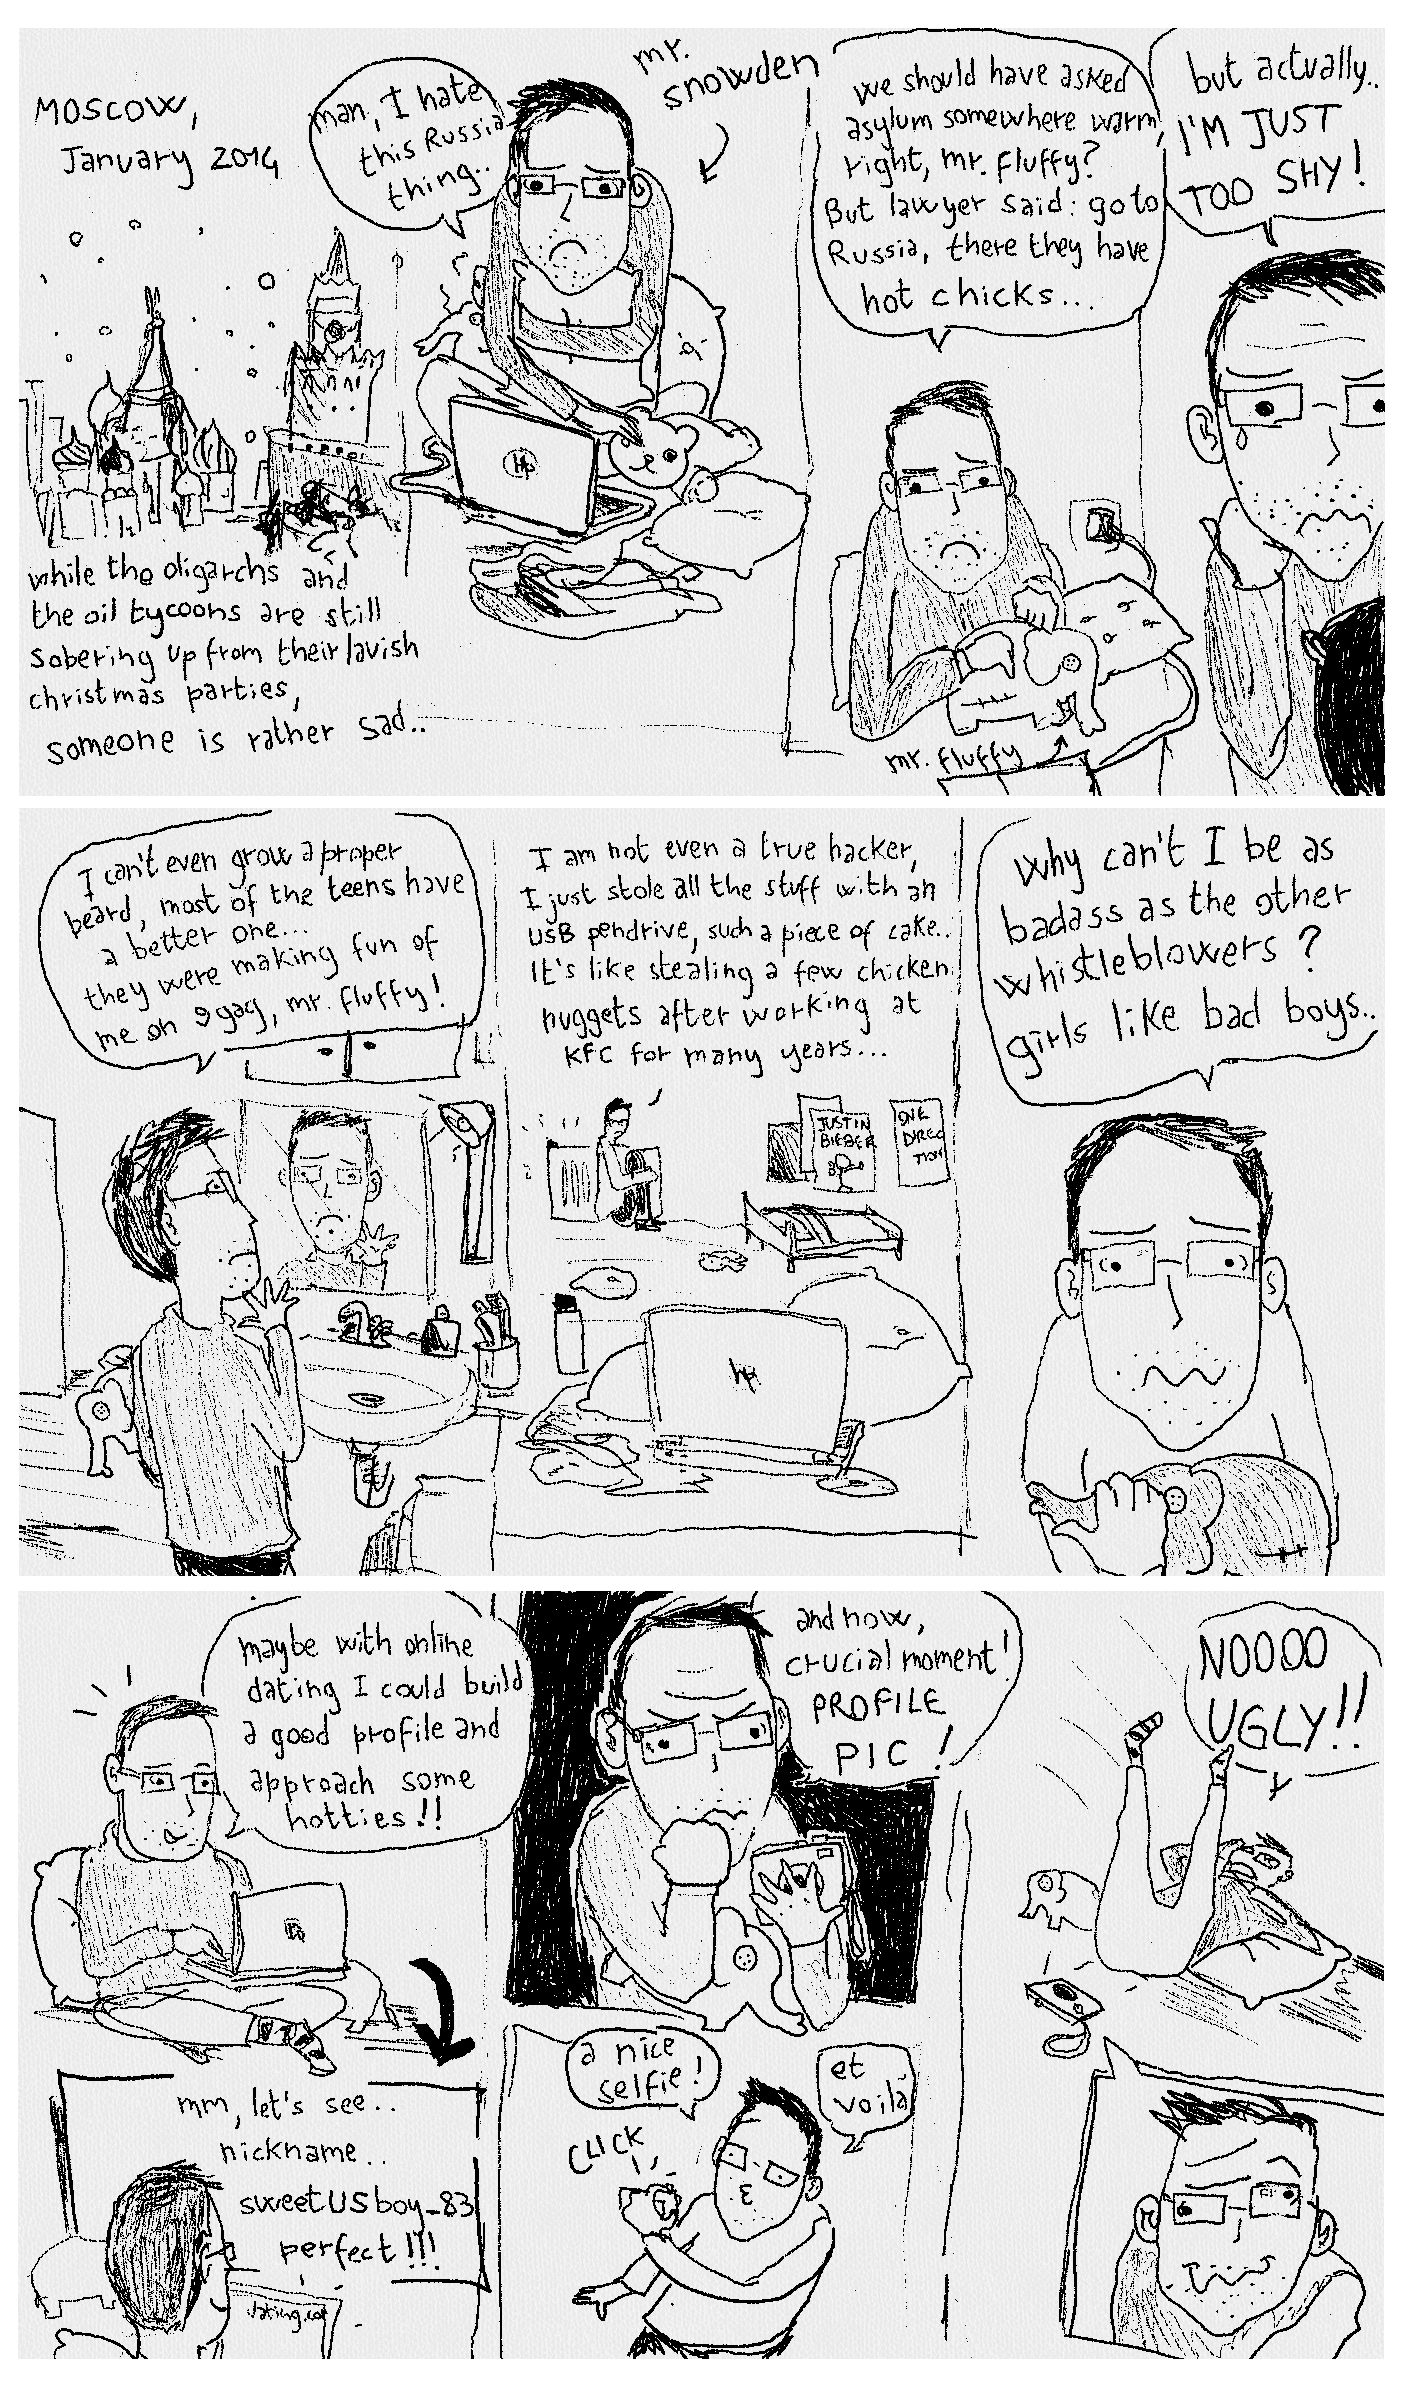 Moscow,
January 2014
man, I hate
this Russia
thing..
mr.
snowden
while the oligarchs and
the oil tycoons are still
sobering up from their lavish
christmas parties,
someone is rather sad..
hp
we should have asked
asylum somewhere warm,
right, mr. fluffy?
But lawyer said: go to
Russia, there they have
hot chicks...
mr. fluffy
but actually..
I'M JUST
TOO SHY!
I can't even grow a proper
beard, most of the teens have
a better one...
they were making fun of
me on 9gag, mr. fluffy!
I am not even a true hacker,
I just stole all the stuff with an
USB pendrive, such a piece of cake..
It's like stealing a few chicken
nuggets after working at
KFC for many years...
JUSTIN
BIEBER
ONE
DIREC
TION
hp
why can't I be as
badass as the other
whistleblowers?
girls like bad boys..
maybe with online
dating I could build
a good profile and
approach some
hotties!!
mm, let's see..
nickname..
sweetUSboy_83
perfect!!!
and now,
crucial moment!
PROFILE
PIC!
a nice
selfie!
CLICK
et
voilà
NOOOO
UGLY!!